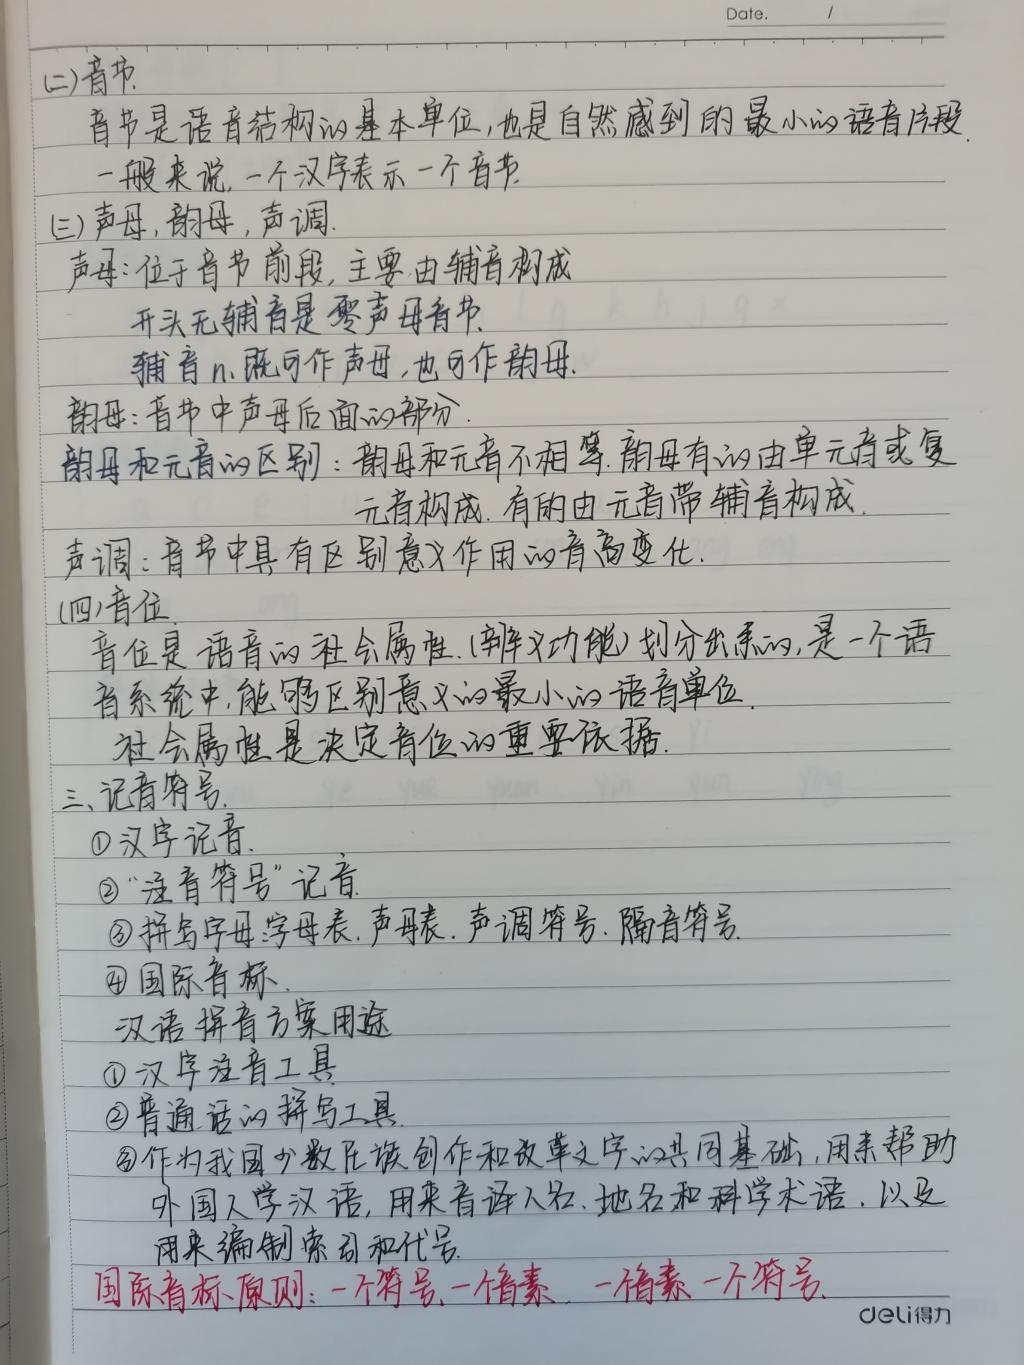 Date. /
(二)音节.
音节是语音结构的基本单位,也是自然感到的最小的语音片段.
一般来说,一个汉字表示一个音节.
(三)声母,韵母,声调.
声母:位于音节前段,主要由辅音构成
开头无辅音是零声母音节.
辅音n.既可作声母,也可作韵母.
韵母:音节中声母后面的部分.
韵母和元音的区别:韵母和元音不相等.韵母有的由单元音或复
元音构成.有的由元音带辅音构成.
声调:音节中具有区别意义作用的音高变化.
(四)音位.
音位是语音的社会属性.(辨义功能)划分出来的,是一个语
音系统中,能够区别意义的最小的语音单位.
社会属性是决定音位的重要依据.
三、记音符号.
①汉字记音.
②“注音符号”记音.
③拼写字母:字母表.声母表.声调符号.隔音符号.
④国际音标.
汉语拼音方案用途
①汉字注音工具
②普通话的拼写工具.
③作为我国少数民族创作和改革文字的共同基础,用来帮助
外国人学汉语,用来音译人名、地名和科学术语.以及
用来编制索引和代号.
国际音标原则:一个符号、一个音素. 一个音素、一个符号.
deli得力